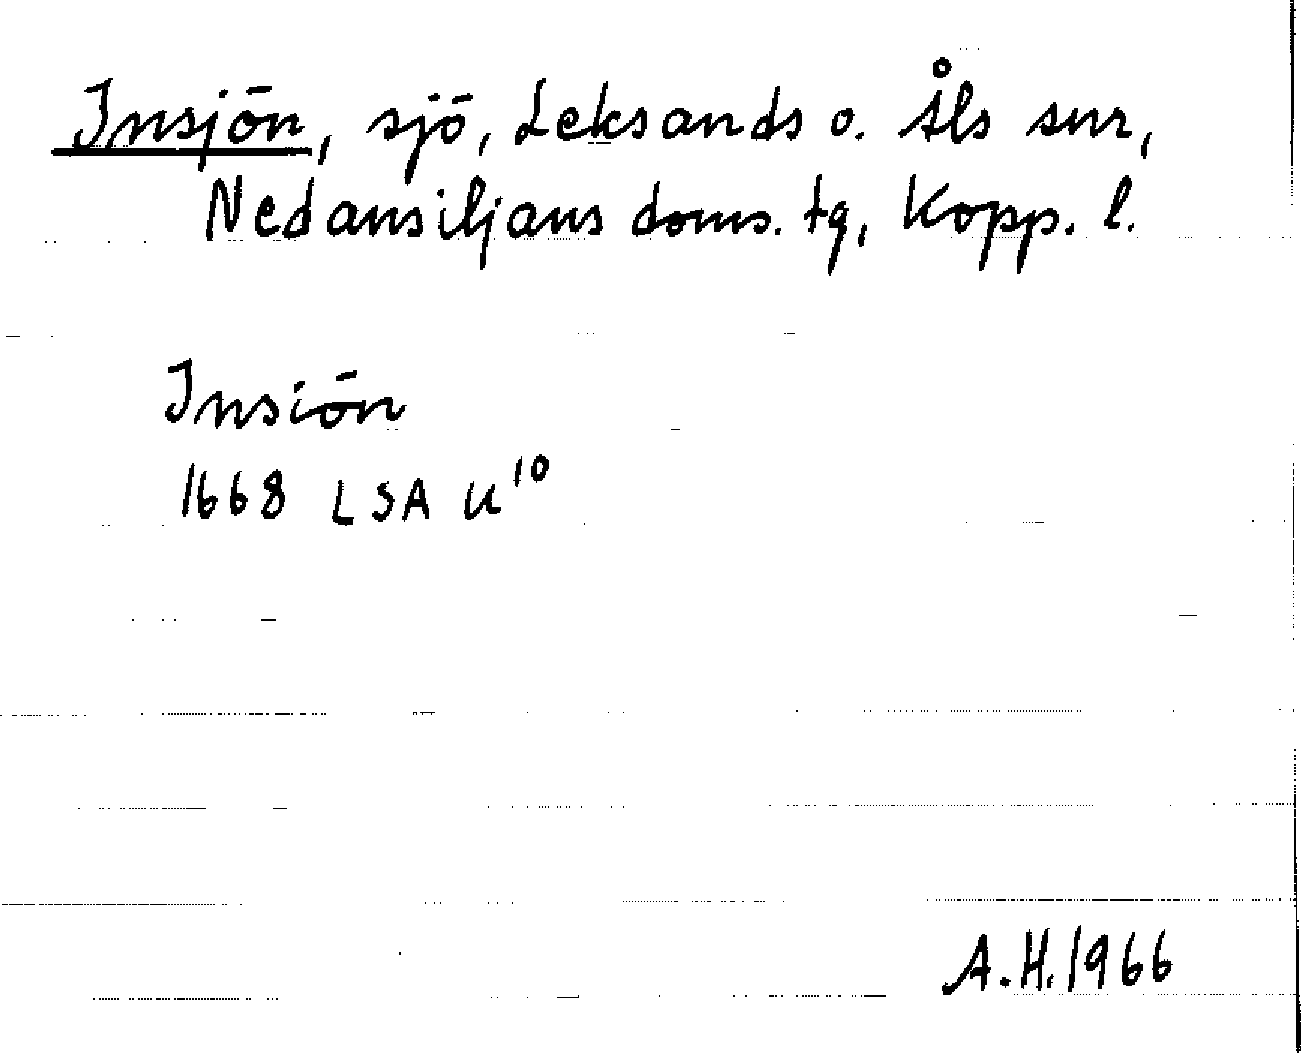 Insjön, sjö, Leksands o. Åls snr,
Nedansiljans doms. tg, Kopp. l.
Insiön
1668 LSA U¹⁰
A.H. 1966